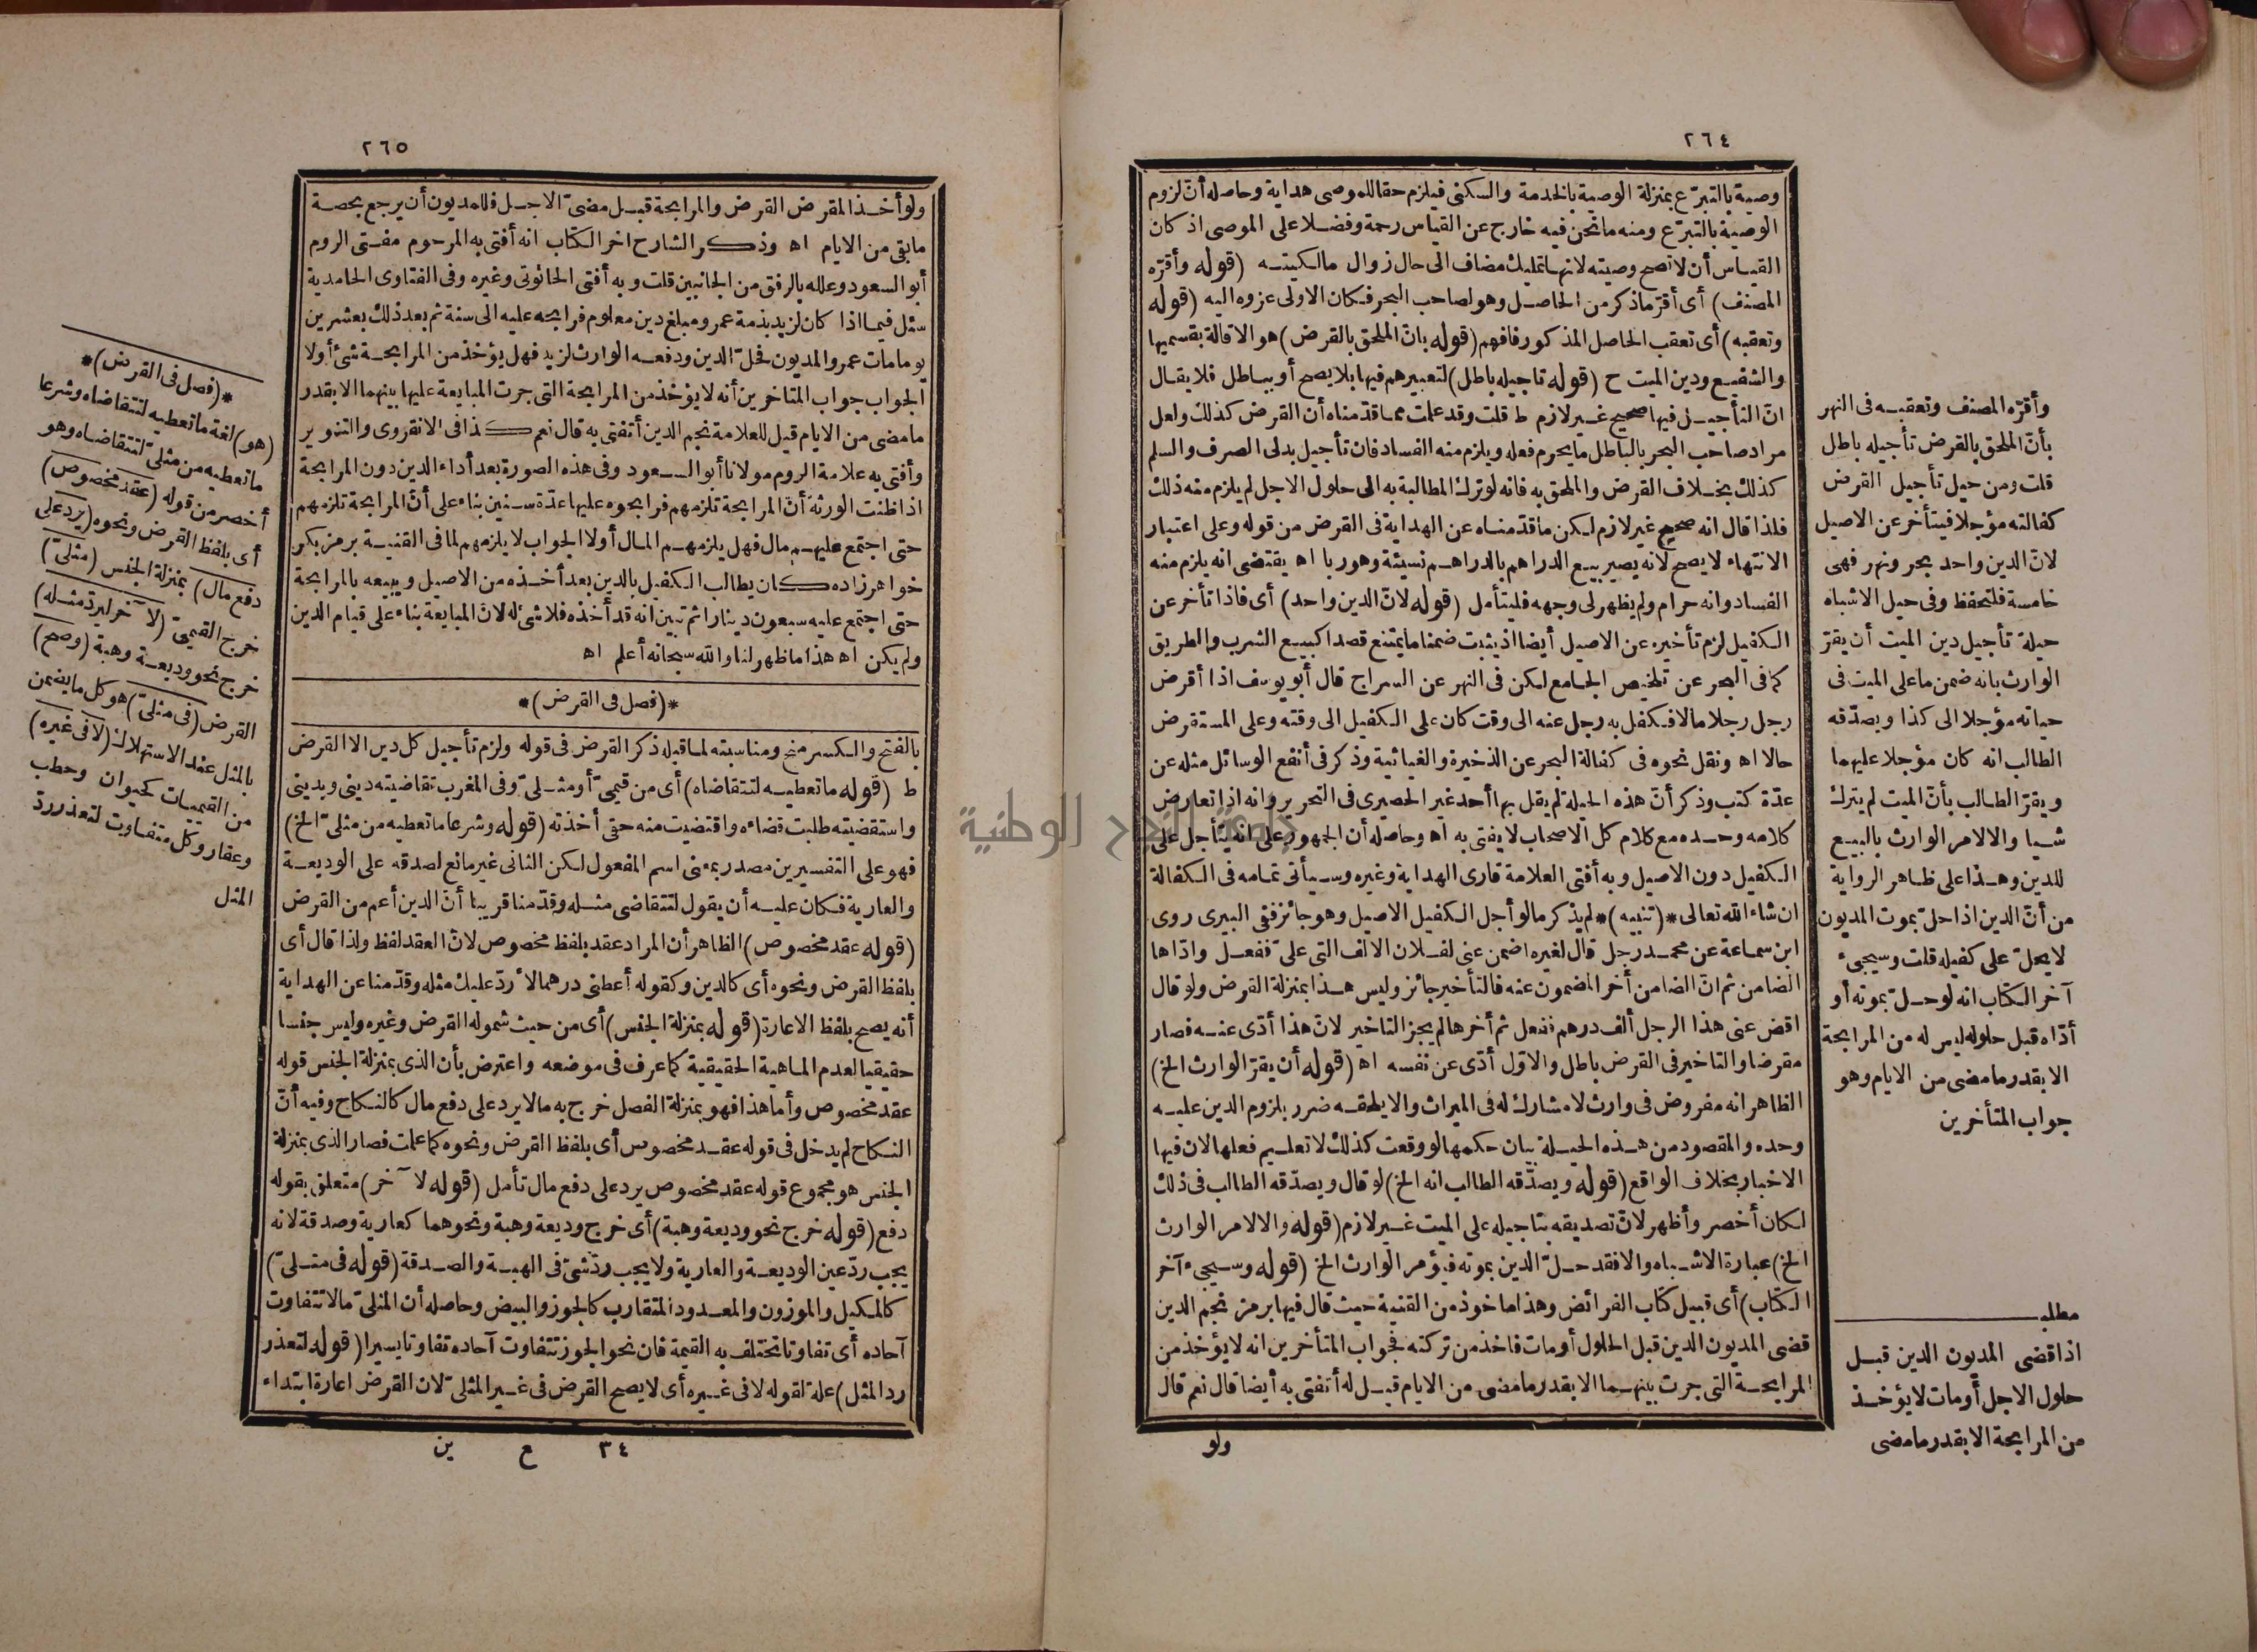 ٢٦٤
وصية بالتبرّع بمنزلة الوصية بالخدمة والسكنى فيلزم حقا للموصى هداية وحاصله أنّ لزوم
الوصية بالتبرّع ومنه ما نحن فيه خارج عن القياس رحمة وفضلا على الموصى اذ كان
القياس أن لا تصح وصيته لانها تمليك مضاف الى حال زوال مالكيته (قوله وأقرّه
المصنف) أى أقرّ ما ذكر من الحاصل وهو لصاحب البحر فكان الاولى عزوه اليه (قوله
وتعقبه) أى تعقب الحاصل المذكور فافهم (قوله بانّ الملحق بالقرض) هو الاقالة بقسميها
والشفيع ودين الميت ح (قوله تاجيله باطل) لتعبيرهم فيها بلا يصح أو بباطل فلا يقال
انّ التأجيل فيها صحيح غير لازم ط قلت وقد علمت مما قدّمناه أن القرض كذلك ولعل
مراد صاحب البحر بالباطل ما يحرم فعله ويلزم منه الفساد فان تأجيل بدلى الصرف والسلم
كذلك بخلاف القرض والملحق به فانه لو ترك المطالبة به الى حلول الاجل لم يلزم منه ذلك
فلذا قال انه صحيح غير لازم لكن ما قدّمناه عن الهداية فى القرض من قوله وعلى اعتبار
الانتهاء لا يصح لانه يصير بيع الدراهم بالدراهم نسيئة وهو ربا اه يقتضى انه يلزم منه
الفساد وانه حرام ولم يظهر لى وجهه فليتأمل (قوله لانّ الدين واحد) أى فاذا تأخر عن
الكفيل لزم تأخيره عن الاصيل أيضا اذ يثبت ضمنا ما يمتنع قصدا كبيع الشرب والطريق
كما فى البحر عن تلخيص الجامع لكن فى النهر عن السراج قال أبو يوسف اذا أقرض
رجل رجلا مالا فكفل به رجل عنه الى وقت كان على الكفيل الى وقته وعلى المستقرض
حالا اه ونقل نحوه فى كفالة البحر عن الذخيرة والغياثية وذكر فى أنفع الوسائل مثله عن
عدّة كتب وذكر أنّ هذه الحيلة لم يقل بها أحد غير الحصيرى فى التحرير وانه اذا تعارض
كلامه وحده مع كلام كل الاصحاب لا يفتى به اه وحاصله أن الجمهور على انه يتأجل على
الكفيل دون الاصيل وبه أفتى العلامة قارى الهداية وغيره وسيأتى تمامه فى الكفالة
ان شاء الله تعالى *(تنبيه)* لم يذكر ما لو أجل الكفيل الاصيل وهو جائز ففى البيرى روى
ابن سماعة عن محمد رجل قال لغيره اضمن عنى لفلان الالف التى علىّ ففعل وادّاها
الضامن ثم انّ الضامن أخر المضمون عنه فالتأخير جائز وليس هذا بمنزلة القرض ولو قال
اقض عنى هذا الرجل ألف درهم ففعل ثم أخرها لم يجز التاخير لانّ هذا أدّى عنه فصار
مقرضا والتاخير فى القرض باطل والاوّل أدّى عن نفسه اه (قوله أن يقرّ الوارث الخ)
الظاهر انه مفروض فى وارث لا مشارك له فى الميراث والا يلحقه ضرر بلزوم الدين عليه
وحده والمقصود من هذه الحيلة بيان حكمها لو وقعت كذلك لا تعليم فعلها لان فيها
الاخبار بخلاف الواقع (قوله ويصدّقه الطالب انه الخ) لو قال ويصدّقه الطالب فى ذلك
لكان أخصر وأظهر لانّ تصديقه بتاجيله على الميت غير لازم (قوله والا لامر الوارث
الخ) عبارة الاشباه والا فقد حلّ الدين بموته فيؤمر الوارث الخ (قوله وسيجىء آخر
الكتاب) أى قبيل كتاب الفرائض وهذا ماخوذ من القنية حيث قال فيها برمز نجم الدين
قضى المديون الدين قبل الحلول أو مات فاخذ من تركته فجواب المتأخرين انه لا يؤخذ من
المرابحة التى جرت بينهما الا بقدر ما مضى من الايام قيل له أتفتى به أيضا قال نعم قال
ولو
وأقرّه المصنف وتعقبه فى النهر
بأنّ الملحق بالقرض تأجيله باطل
قلت ومن حيل تأجيل القرض
كفالته مؤجلا فيتأخر عن الاصيل
لانّ الدين واحد بحر ونهر فهى
خامسة فلتحفظ وفى حيل الاشباه
حيلة تأجيل دين الميت أن يقرّ
الوارث بانه ضمن ما على الميت فى
حياته مؤجلا الى كذا ويصدّقه
الطالب انه كان مؤجلا عليهما
ويقرّ الطالب بأنّ الميت لم يترك
شيا والا لامر الوارث بالبيع
للدين وهذا على ظاهر الرواية
من أنّ الدين اذا حلّ بموت المديون
لا يحلّ على كفيله قلت وسيجىء
آخر الكتاب انه لو حلّ بموته أو
أدّاه قبل حلوله ليس له من المرابحة
الا بقدر ما مضى من الايام وهو
جواب المتأخرين
مطلب
اذا قضى المديون الدين قبل
حلول الاجل أو مات لا يؤخذ
من المرابحة الا بقدر ما مضى
٢٦٥
ولو أخذ المقرض القرض والمرابحة قبل مضىّ الاجل فللمديون أن يرجع بحصة
ما بقى من الايام اه وذكر الشارح اخر الكتاب انه أفتى به المرحوم مفتى الروم
أبو السعود وعلله بالرفق من الجانبين قلت وبه أفتى الحانوتى وغيره وفى الفتاوى الحامدية
سئل فيما اذا كان لزيد بذمة عمرو مبلغ دين معلوم فرابحه عليه الى سنة ثم بعد ذلك بعشرين
يوما مات عمرو المديون فحلّ الدين ودفعه الوارث لزيد فهل يؤخذ من المرابحة شئ أو لا
الجواب جواب المتاخرين أنه لا يؤخذ من المرابحة التى جرت المبايعة عليها بينهما الا بقدر
ما مضى من الايام قيل للعلامة نجم الدين أتفتى به قال نعم كذا فى الانقروى والتنوير
وأفتى به علامة الروم مولانا أبو السعود وفى هذه الصورة بعد أداء الدين دون المرابحة
اذا ظنت الورثة أنّ المرابحة تلزمهم فرابحوه عليها عدّة سنين بناء على أنّ المرابحة تلزمهم
حتى اجتمع عليهم مال فهل يلزمهم المال أو لا الجواب لا يلزمهم لما فى القنية برمز بكر
خواهر زاده كان يطالب الكفيل بالدين بعد أخذه من الاصيل ويبيعه بالمرابحة
حتى اجتمع عليه سبعون دينارا ثم تبين انه قد أخذه فلا شئ له لانّ المبايعة بناء على قيام الدين
ولم يكن اه هذا ما ظهر لنا والله سبحانه أعلم اه
*(فصل فى القرض)*
بالفتح والكسر منح ومناسبته لما قبله ذكر القرض فى قوله ولزم تأجيل كل دين الا القرض
ط (قوله ما تعطيه لتتقاضاه) أى من قيمىّ أو مثلىّ وفى المغرب تقاضيته دينى وبدينى
واستقضيته طلبت قضاءه واقتضيت منه حقى أخذته (قوله وشرعا ما تعطيه من مثلىّ الخ)
فهو على التفسيرين مصدر بمعنى اسم المفعول لكن الثانى غير مانع لصدقه على الوديعة
والعارية فكان عليه أن يقول لتتقاضى مثله وقدّمنا قريبا أنّ الدين أعم من القرض
(قوله عقد مخصوص) الظاهر أن المراد عقد بلفظ مخصوص لانّ العقد لفظ ولذا قال أى
بلفظ القرض ونحوه أى كالدين وكقوله أعطنى درهما لأردّ عليك مثله وقدّمنا عن الهداية
أنه يصح بلفظ الاعارة (قوله بمنزلة الجنس) أى من حيث شموله القرض وغيره وليس جنسا
حقيقيا لعدم الماهية الحقيقية كما عرف فى موضعه واعترض بأن الذى بمنزلة الجنس قوله
عقد مخصوص وأما هذا فهو بمنزلة الفصل خرج به ما لا يرد على دفع مال كالنكاح وفيه أنّ
النكاح لم يدخل فى قوله عقد مخصوص أى بلفظ القرض ونحوه كما علمت فصار الذى بمنزلة
الجنس هو مجموع قوله عقد مخصوص يرد على دفع مال تأمل (قوله لآخر) متعلق بقوله
دفع (قوله خرج نحو وديعة وهبة) أى خرج وديعة وهبة ونحوهما كعارية وصدقة لانه
يجب ردّ عين الوديعة والعارية ولا يجب ردّ شئ فى الهبة والصدقة (قوله فى مثلىّ)
كالمكيل والموزون والمعدود المتقارب كالجوز والبيض وحاصله أن المثلىّ ما لا تتفاوت
آحاده أى تفاوتا تختلف به القيمة فان نحو الجوز تتفاوت آحاده تفاوتا يسيرا (قوله لتعذر
رد المثل) علة لقوله لا فى غيره أى لا يصح القرض فى غير المثلىّ لان القرض اعارة ابتداء
٣٤ ع ين
*(فصل فى القرض)*
(هو) لغة ما تعطيه لتتقاضاه وشرعا
ما تعطيه من مثلىّ لتتقاضاه وهو
أخصر من قوله (عقد مخصوص)
أى بلفظ القرض ونحوه (يرد على
دفع مال) بمنزلة الجنس (مثلىّ)
خرج القيمىّ (لآخر ليردّ مثله)
خرج نحو وديعة وهبة (وصح)
القرض (فى مثلىّ) هو كل ما يضمن
بالمثل عند الاستهلاك (لا فى غيره)
من القيميات كحيوان وحطب
وعقار وكل متفاوت لتعذر ردّ
المثل
جامعة النجاح الوطنية